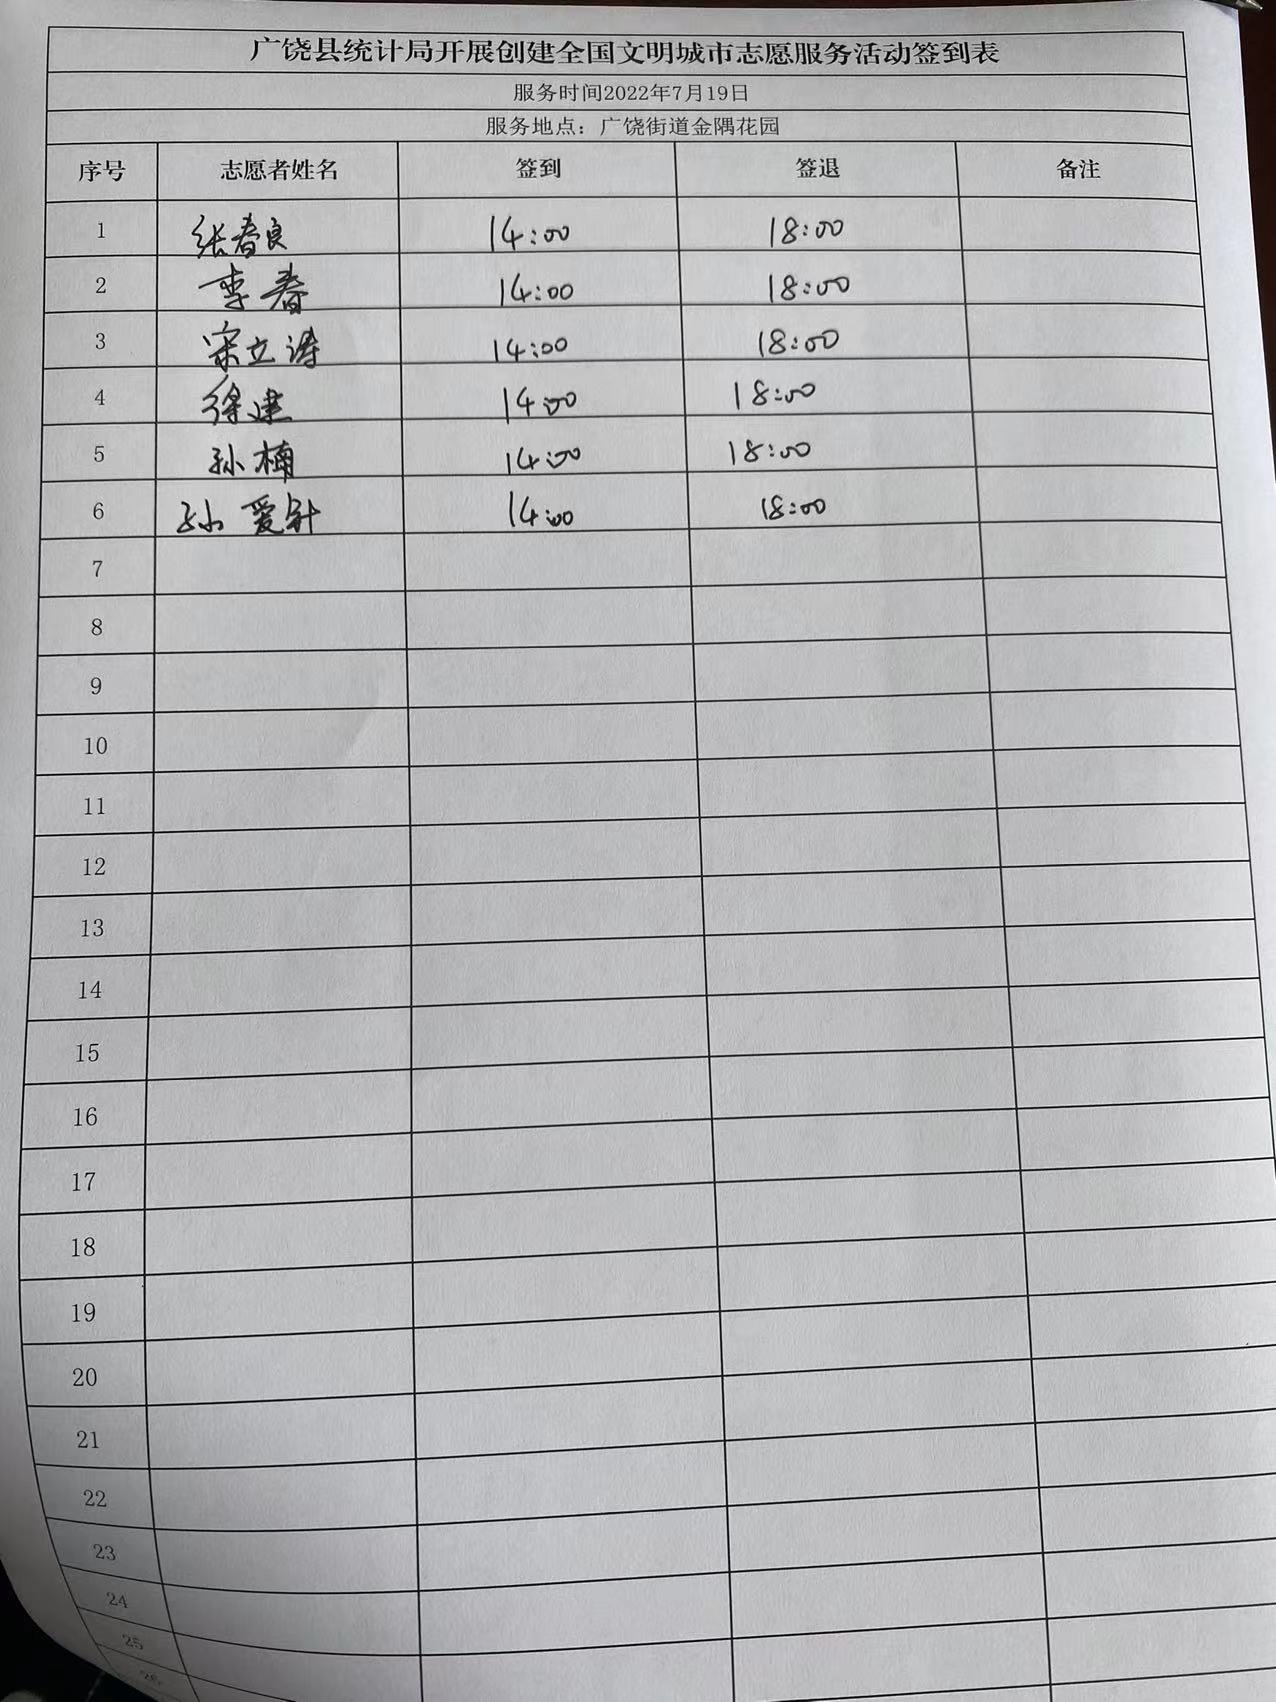 广饶县统计局开展创建全国文明城市志愿服务活动签到表
服务时间2022年7月19日
服务地点：广饶街道金隅花园
序号 志愿者姓名 签到 签退 备注
1 张春良 14:00 18:00
2 李春 14:00 18:00
3 宋立涛 14:00 18:00
4 徐建 14:00 18:00
5 孙楠 14:00 18:00
6 孙爱针 14:00 18:00
7
8
9
10
11
12
13
14
15
16
17
18
19
20
21
22
23
24
25
26